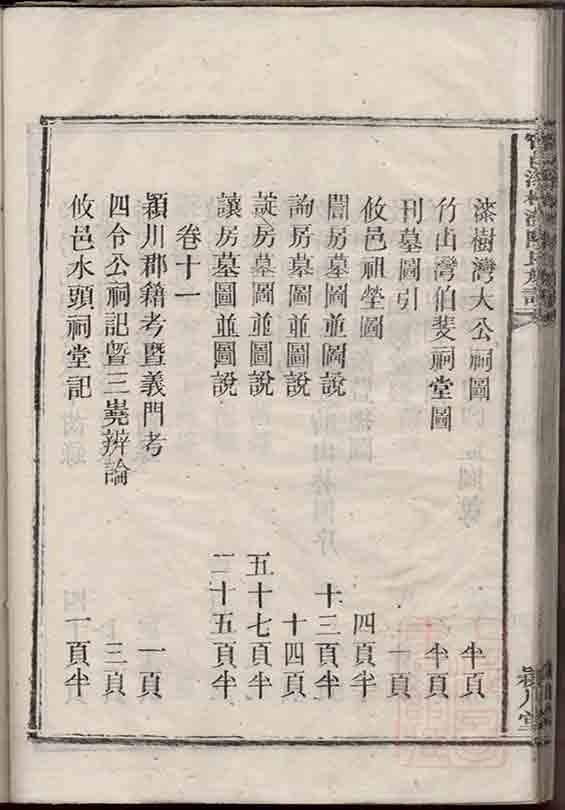 漆樹灣大公祠圖 半頁
竹山灣伯斐祠堂圖 半頁
刊墓圖引 一頁
攸邑祖塋圖 四頁半
誾房墓圖並圖說 十三頁半
詢房墓圖並圖說 十四頁
諚房墓圖並圖說 五十七頁半
讓房墓圖並圖說 二十五頁半
卷十一
潁川郡籍考暨義門考 一頁
四令公祠記暨三嶤辨論 三頁
攸邑水頭祠堂記 一頁半
潁川堂